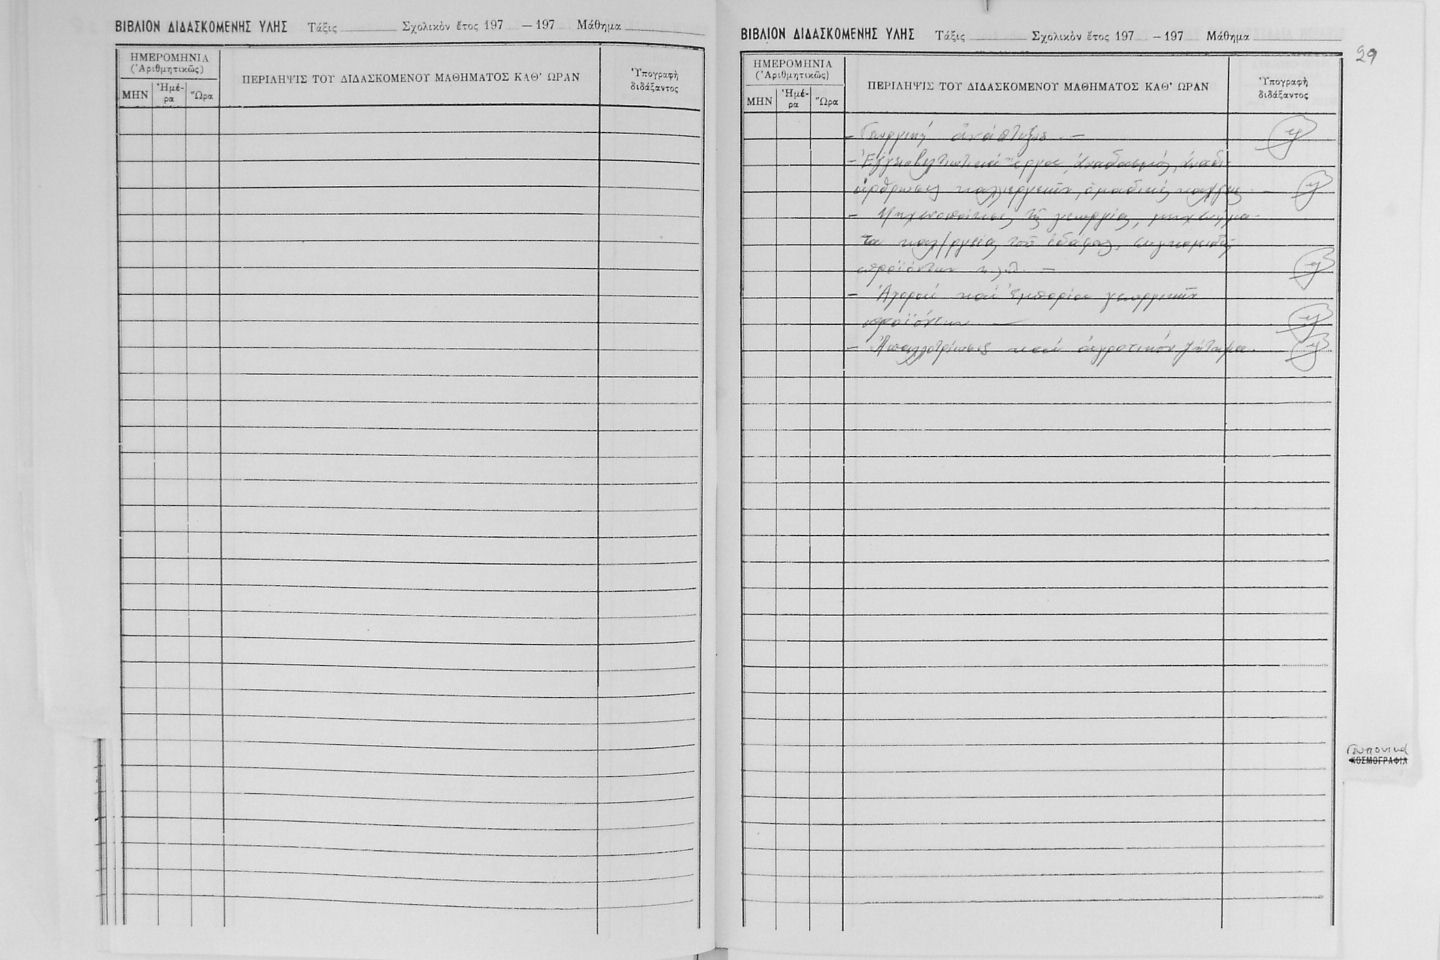 ΒΙΒΛΙΟΝ ΔΙΔΑΣΚΟΜΕΝΗΣ ΥΛΗΣ Τάξις Σχολικὸν ἔτος 197 — 197 Μάθημα
ΗΜΕΡΟΜΗΝΙΑ
(Ἀριθμητικῶς)
ΜΗΝ Ἡμέ-
ρα Ὥρα
ΠΕΡΙΛΗΨΙΣ ΤΟΥ ΔΙΔΑΣΚΟΜΕΝΟΥ ΜΑΘΗΜΑΤΟΣ ΚΑΘ' ΩΡΑΝ
Ὑπογραφὴ
διδάξαντος
ΒΙΒΛΙΟΝ ΔΙΔΑΣΚΟΜΕΝΗΣ ΥΛΗΣ Τάξις Σχολικὸν ἔτος 197 — 197 Μάθημα
29
ΗΜΕΡΟΜΗΝΙΑ
(Ἀριθμητικῶς)
ΜΗΝ Ἡμέ-
ρα Ὥρα
ΠΕΡΙΛΗΨΙΣ ΤΟΥ ΔΙΔΑΣΚΟΜΕΝΟΥ ΜΑΘΗΜΑΤΟΣ ΚΑΘ' ΩΡΑΝ
Ὑπογραφὴ
διδάξαντος
- Γεωργικὴ ἀνάπτυξις. —
- Ἐγγειοβελτιωτικὰ ἔργα, ἀναδασμός, ἀναδι
άρθρωσις καλλιεργειῶν, ὁμαδικὲς
- Μηχανοποίησις τῆς γεωργίας, μηχανήμα-
τα καλ/ργείας τοῦ ἐδάφους, συγκομιδῆς
προϊόντων κ.λ.π. —
- Ἀγορὰ καὶ ἐμπόριον γεωργικῶν
προϊόντων —
- Ἀπαλλοτρίωσις καὶ ἀγροτικὸν ζήτημα.
Γεωπονικά
ΚΟΣΜΟΓΡΑΦΙΑ